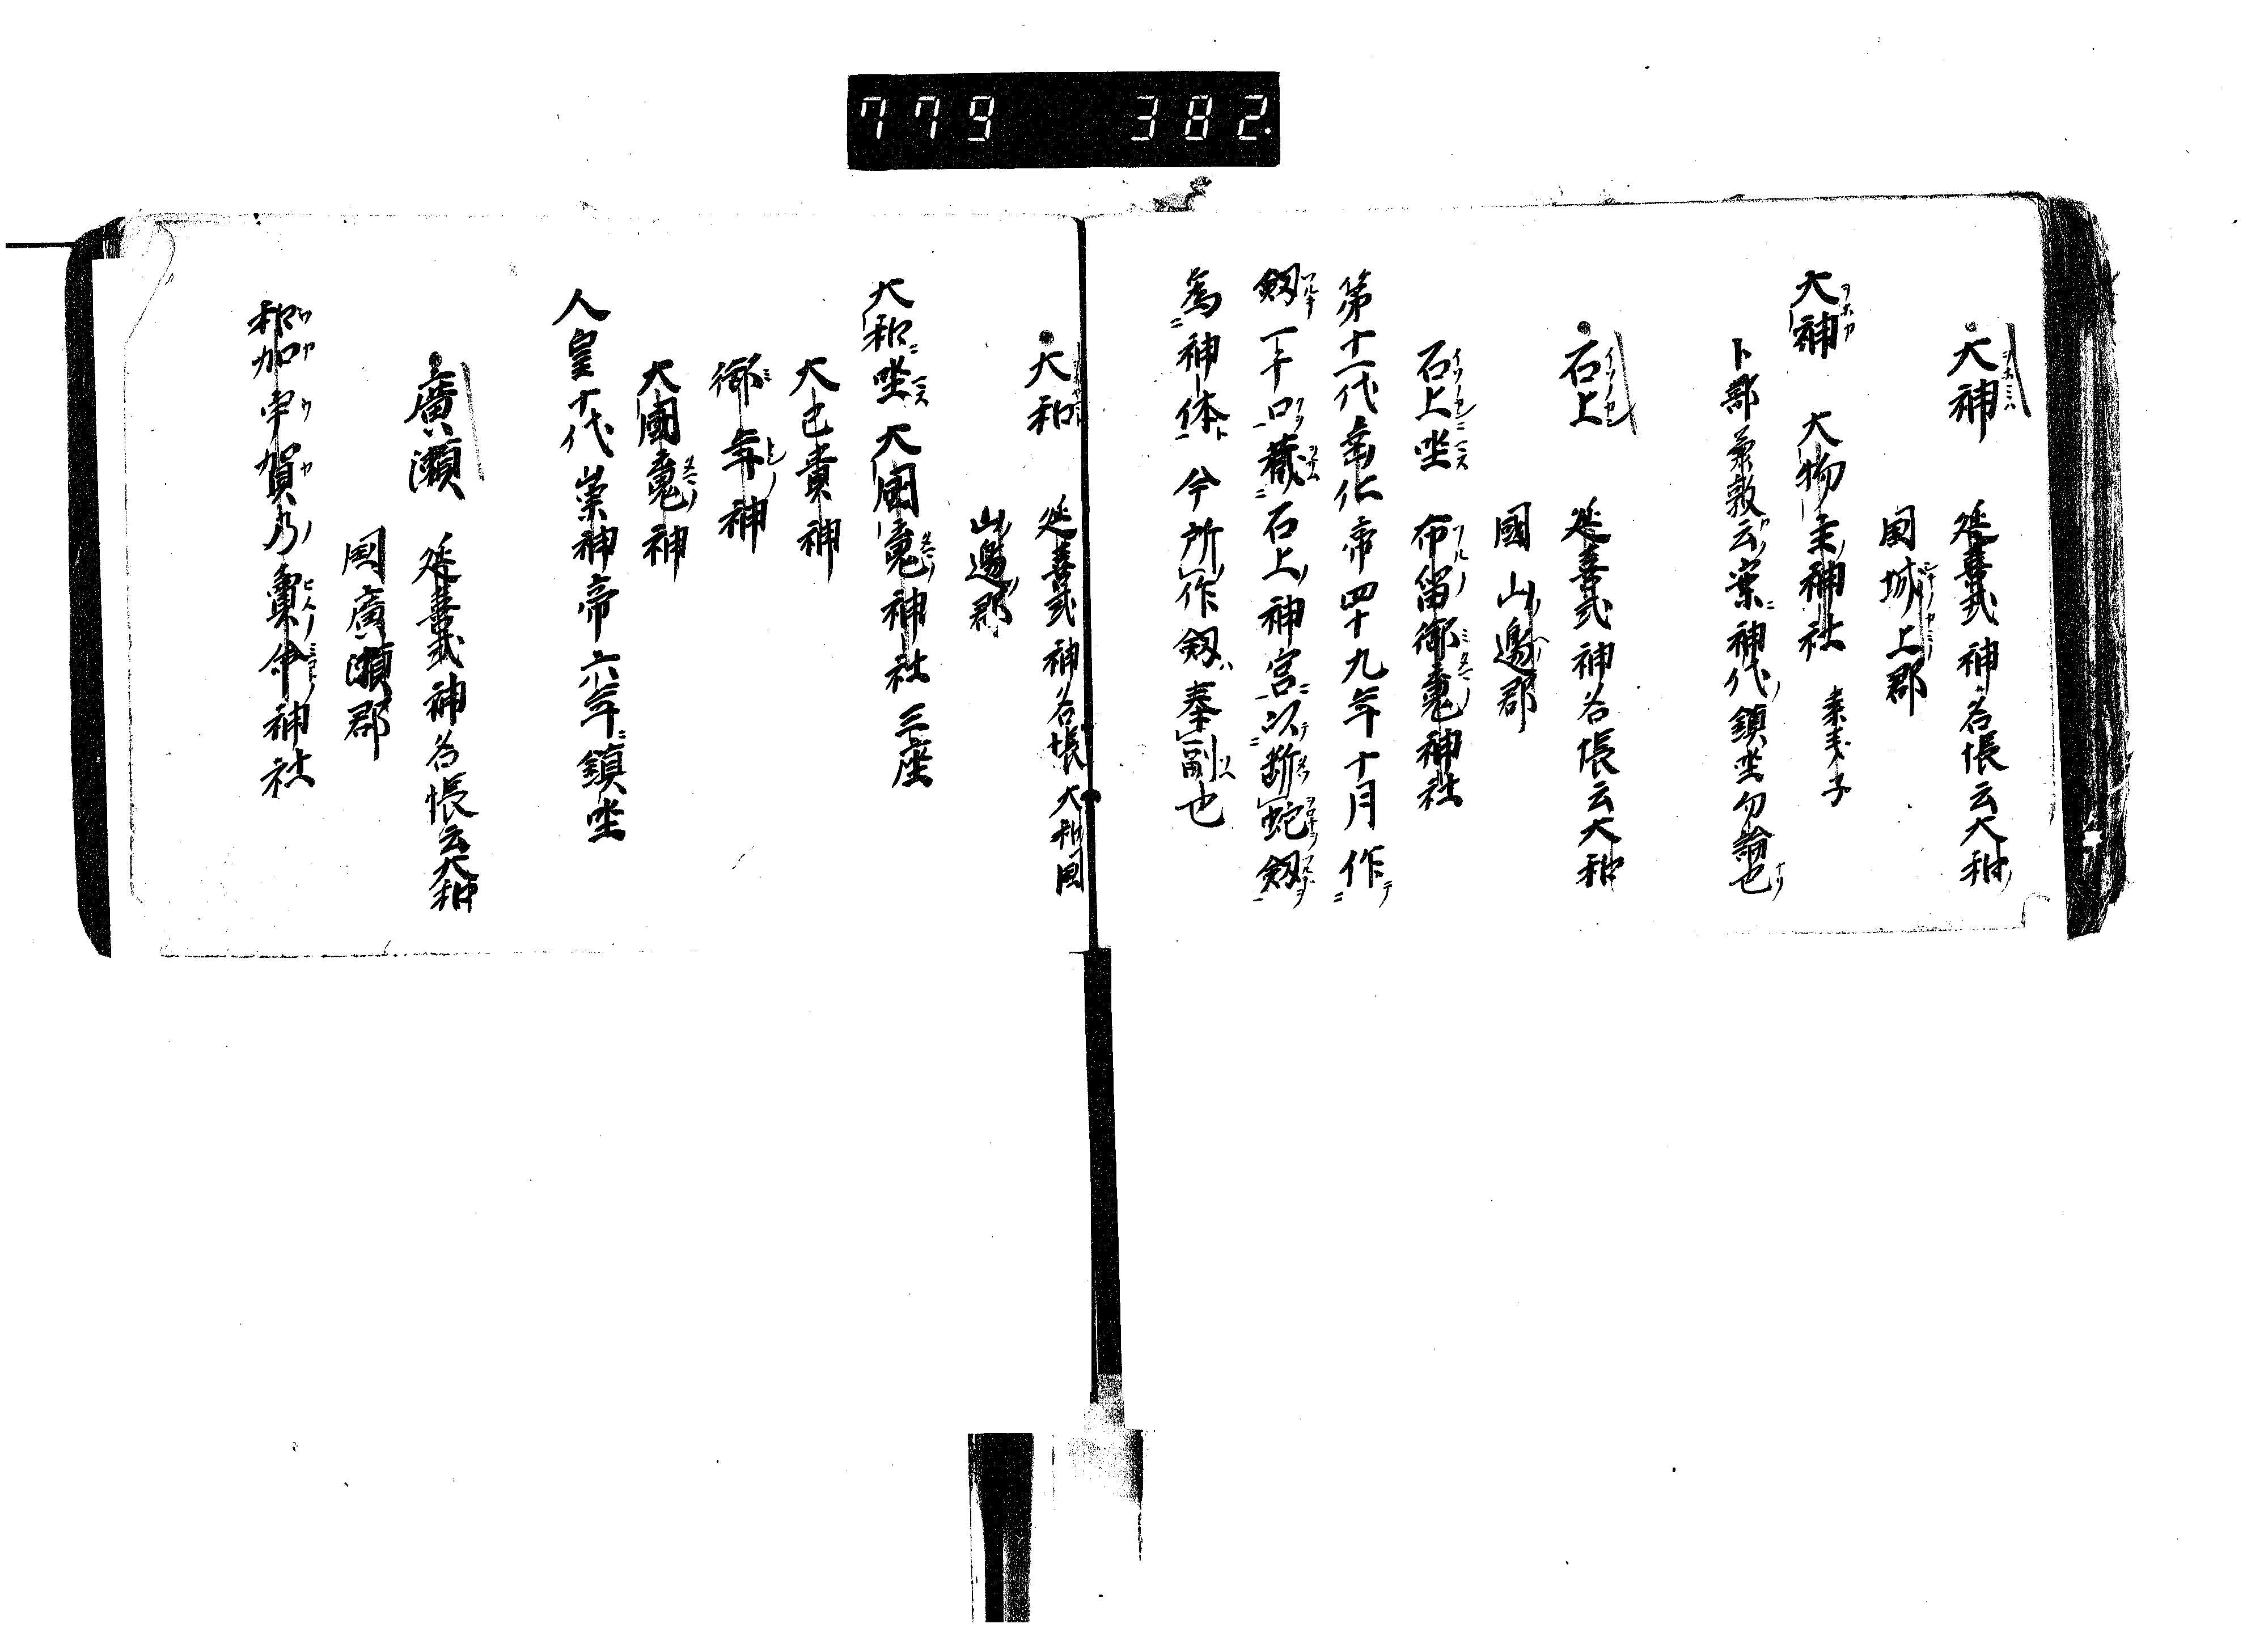 779 382.
大神 延喜式神名帳云大和
国城上郡
大神 大物主神社 素戔子
卜部兼敦云案神代鎮坐勿論也
石上 延喜式神名帳云大和
國山邊郡
石上坐 布留御䰟神社
第十一代垂仁帝四十九年十月作
劔一千口蔵石上神宮以断蛇劔
為神体今所作劔奉副也
大和 延喜式神名帳大和国
山邊郡
大和坐大国䰟神社三座
大己貴神
御年神
大國䰟神
人皇十代崇神帝六年鎮坐
廣瀬 延喜式神名帳云大和
国廣瀬郡
和加宇賀乃賣命神社